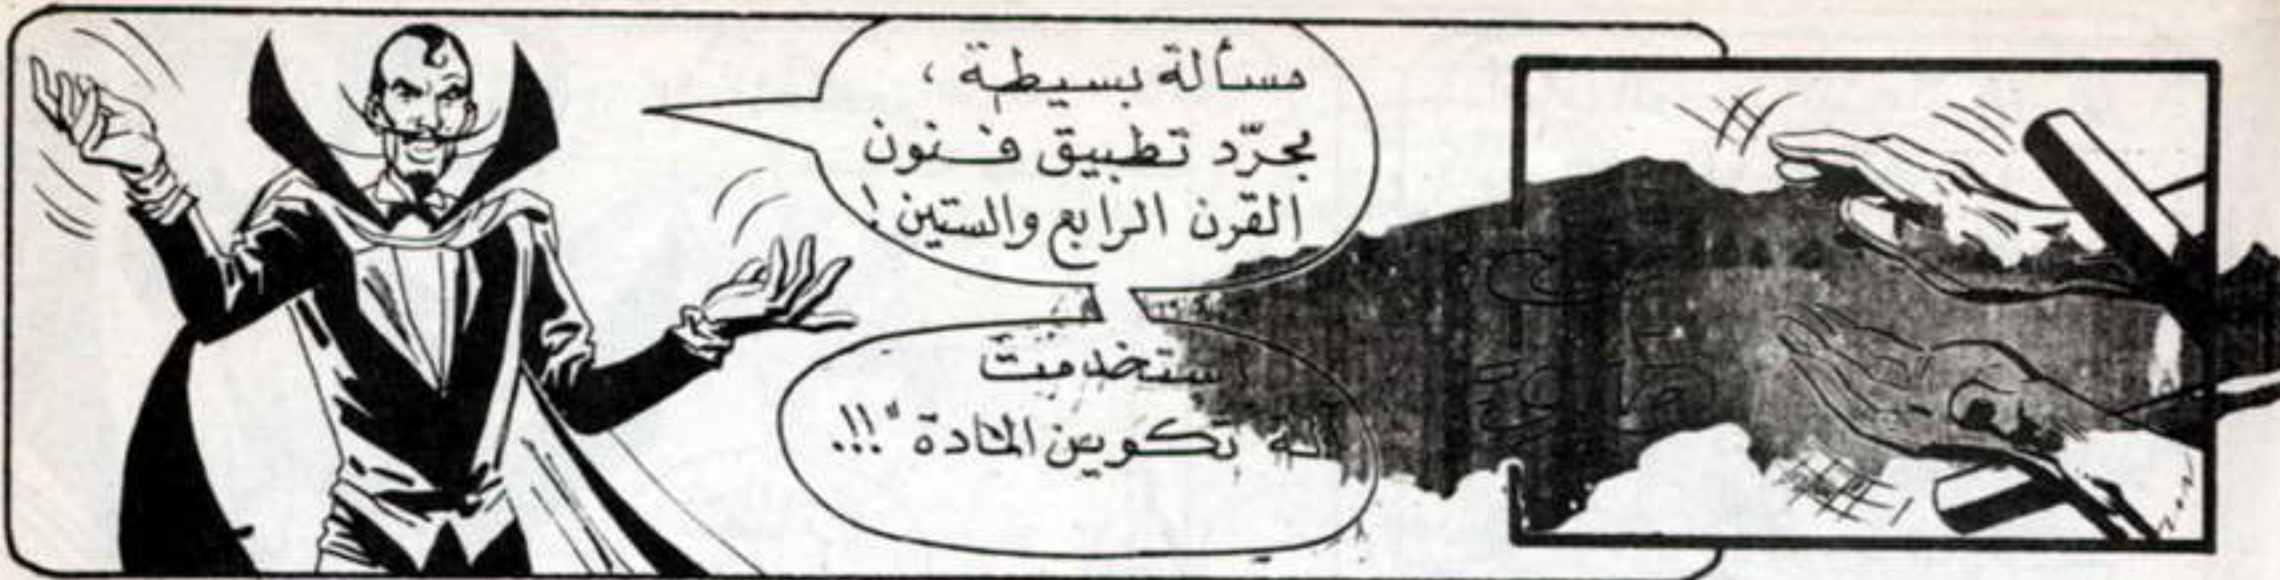 مسألة بسيطة،
مجرّد تطبيق فنون
القرن الرابع والستين!
تكوين المادة"!!!